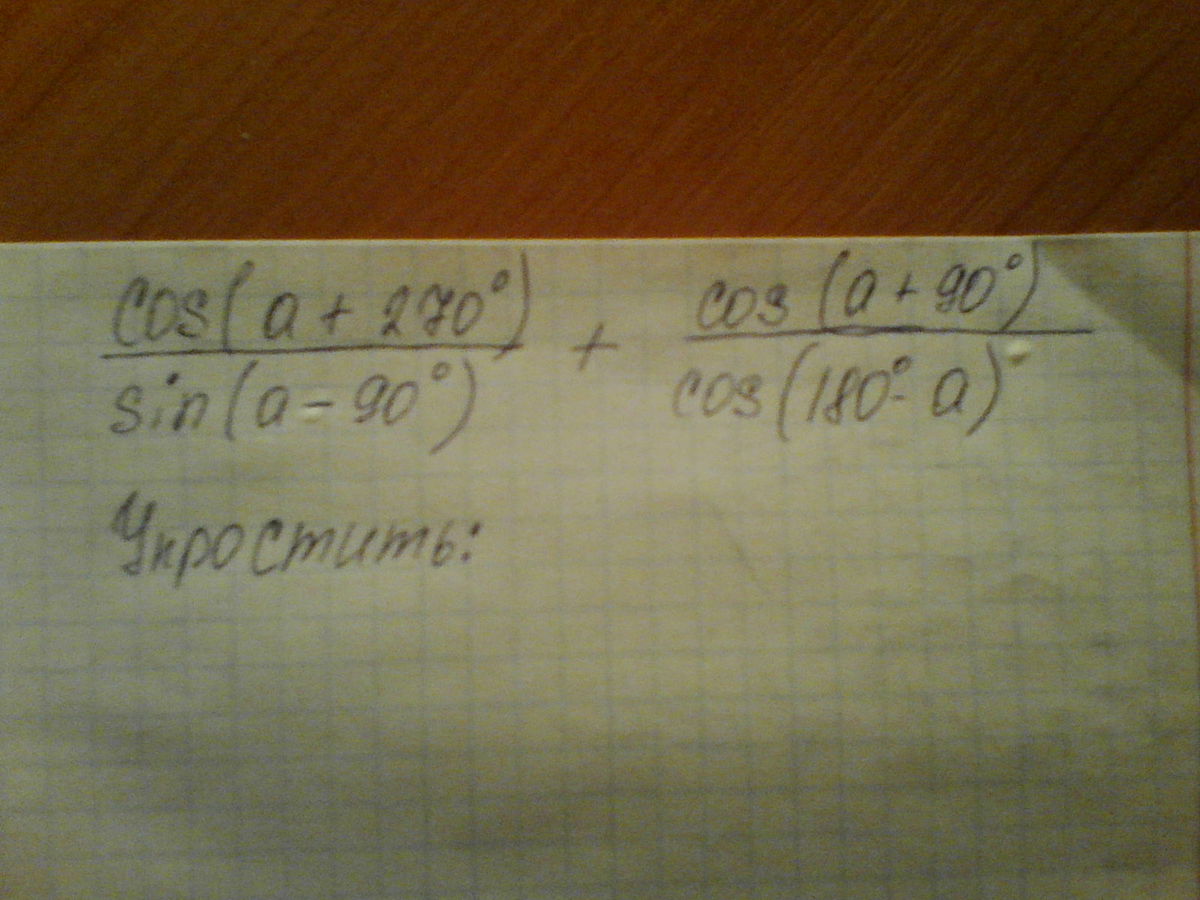 cos(a + 270°) / sin(a - 90°) + cos(a + 90°) / cos(180° - a)
Упростить: